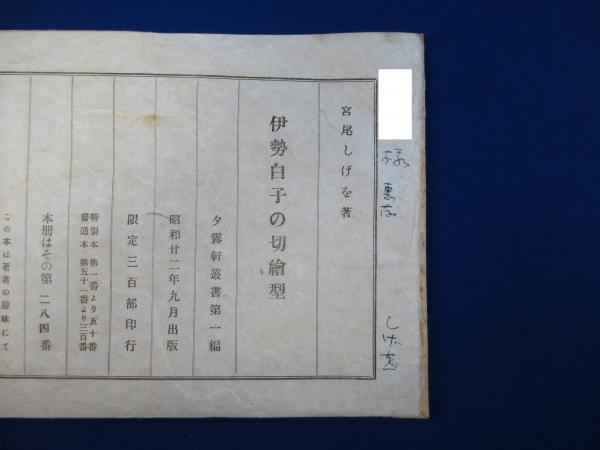 様 恵存
しげを
宮尾しげを著
伊勢白子の切繪型
夕霧軒叢書第一編
昭和廿二年九月出版
限定三百部印行
特製本 第一番より五十番
普通本 第五十一番より三百番
本册はその第 二八四番
この本は著者の趣味にて